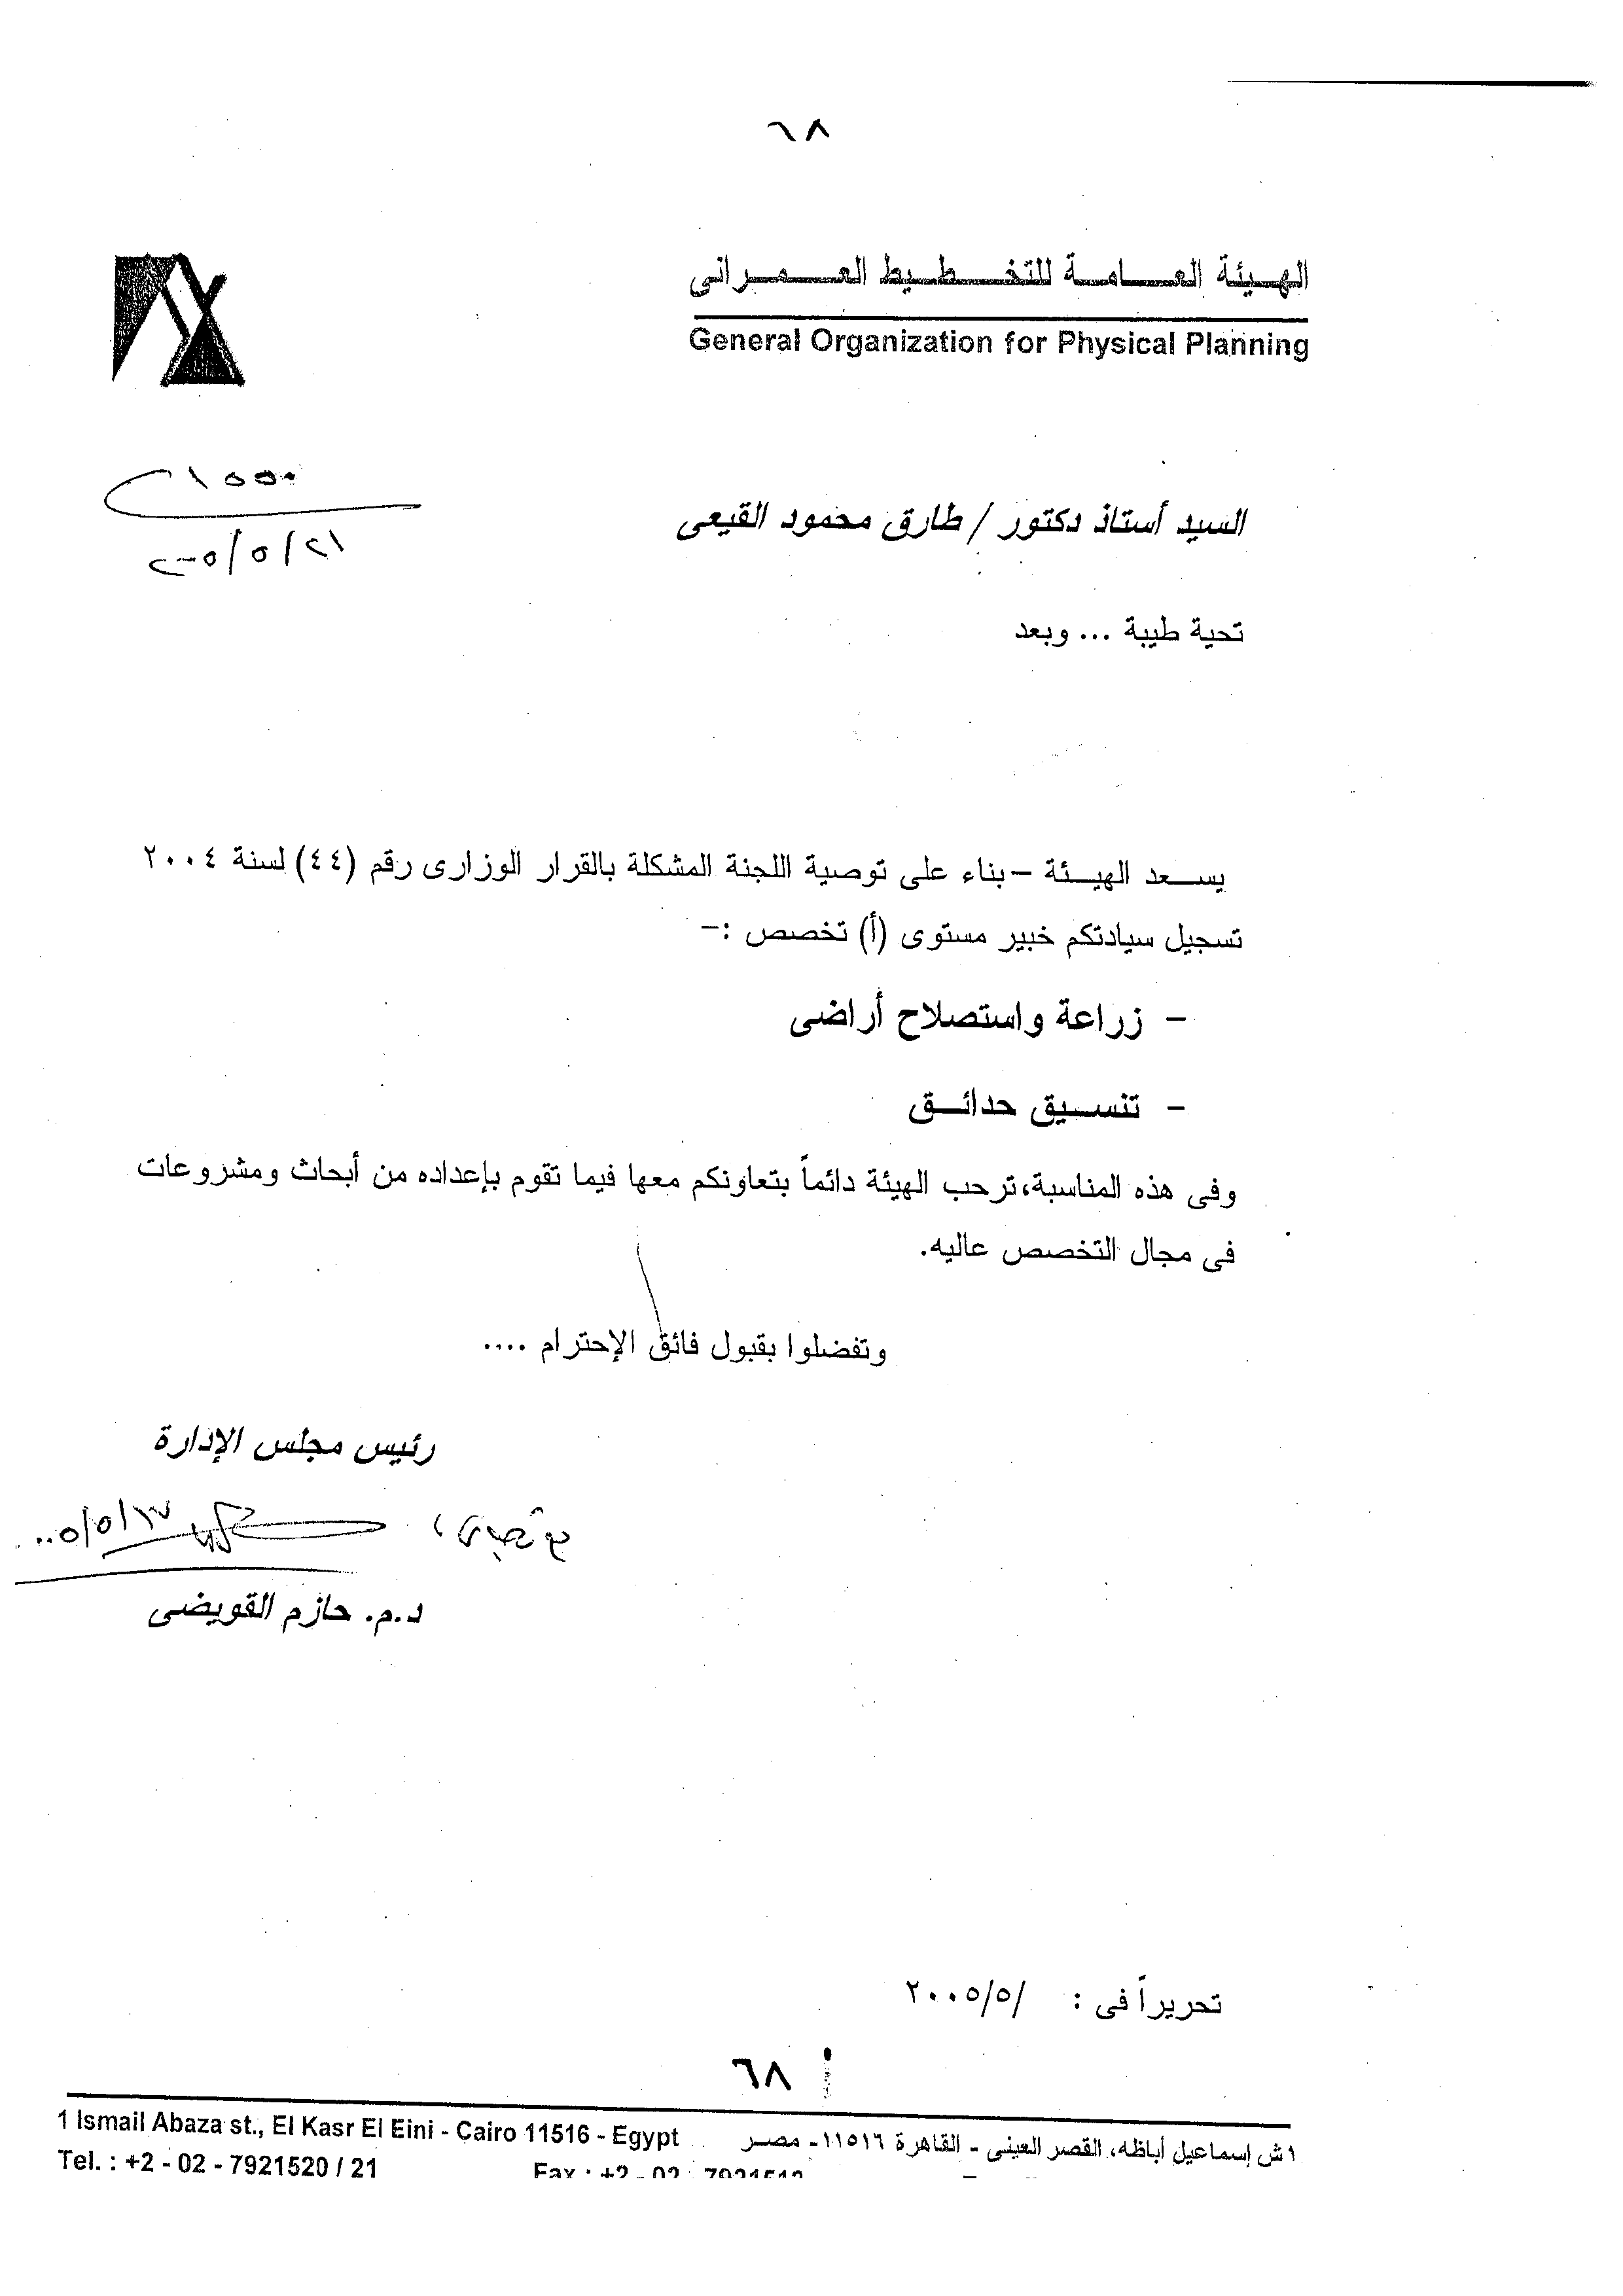 ٦٨
الهيئة العامة للتخطيط العمرانى
General Organization for Physical Planning
٢١/٥/٢٠٠٥
السيد أستاذ دكتور / طارق محمود القيعى
تحية طيبة ... وبعد
يسعد الهيئة – بناء على توصية اللجنة المشكلة بالقرار الوزارى رقم (٤٤) لسنة ٢٠٠٤
تسجيل سيادتكم خبير مستوى (أ) تخصص :–
– زراعة واستصلاح أراضى
– تنسيق حدائق
وفى هذه المناسبة، ترحب الهيئة دائماً بتعاونكم معها فيما تقوم بإعداده من أبحاث ومشروعات
فى مجال التخصص عاليه.
وتفضلوا بقبول فائق الإحترام ....
رئيس مجلس الإدارة
د.م. حازم القويضى
تحريراً فى : /٥/٢٠٠٥
٦٨
1 Ismail Abaza st., El Kasr El Eini - Cairo 11516 - Egypt
١ش إسماعيل أباظه، القصر العينى - القاهرة ١١٥١٦- مصر
Tel. : +2 - 02 - 7921520 / 21
Fax : +2 - 02 - 7921512